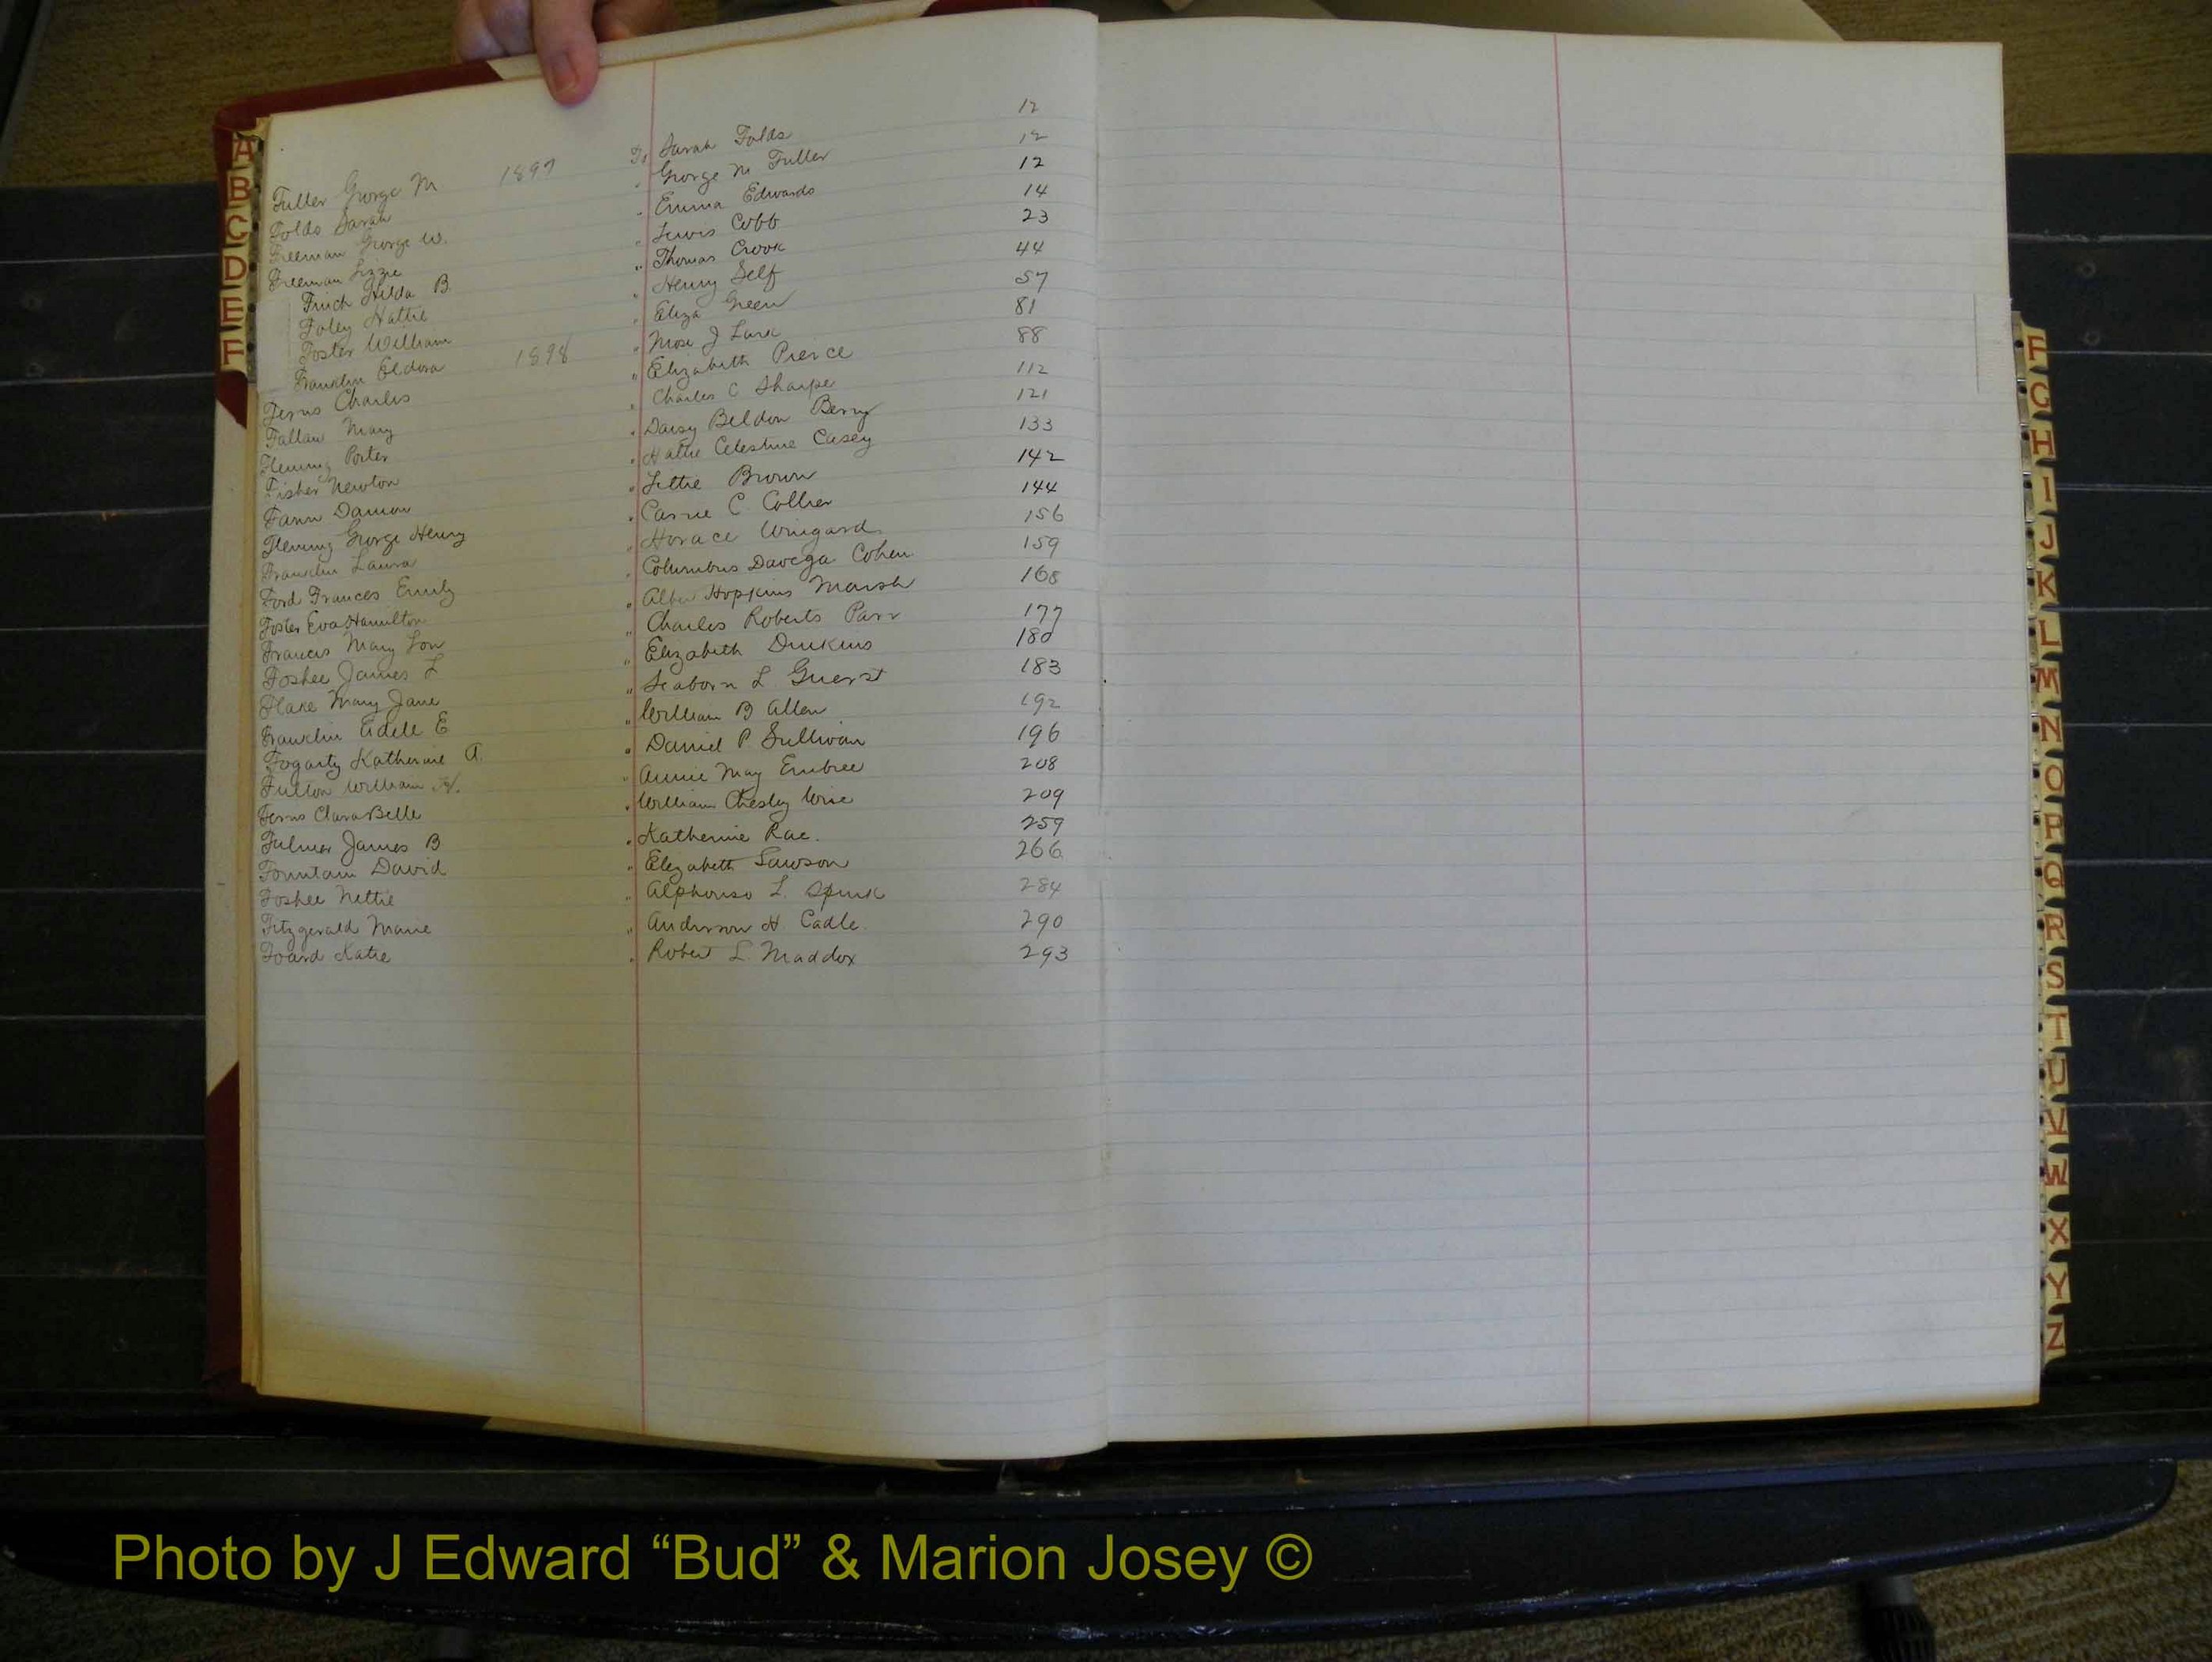 Fuller George M 1897 To Sarah Folds 12
Folds Sarah " George M Fuller 12
Freeman George W. " Emma Edwards 12
Freeman Lizzie " Lewis Cobb 14
Finch Hilda B. " Thomas Crook 23
Foley Hattie " Henry Self 44
Foster William " Eliza Green 57
Franklin Eldora 1898 " Mose J Lark 81
Ferris Charles " Elizabeth Pierce 88
Fallaw Mary " Charles C Sharpe 112
Fleming Porter " Daisy Beldon Berry 121
Fisher Newton " Hattie Celestine Casey 133
Fann Damon " Littie Brown 142
Fleming George Henry " Carrie C Collier 144
Franklin Laura " Horace Wingard 156
Ford Frances Emily " Columbus Davega Cohen 159
Foster Eva Hamilton " Hopkins Marsh 168
Francis Mary Lou " Charles Roberts Parr 177
Foshee James L " Elizabeth Dinkins 180
Flake Mary Jane " Seaborn L Guerst 183
Franklin Adele E " William B Allen 192
Fogarty Katherine A. " Daniel P Sullivan 196
Fulton William H. " Annie May Embree 208
Ferris Clara Belle " William Chesley Wise 209
Fulmer James B " Katherine Rae. 259
Fountain David " Elizabeth Lawson 266
Foshee Nettie " Alphonso L. Spink 284
Fitzgerald Marie " Anderson H. Cadle. 290
Foard Katie " Robert L. Maddox 293
A
B
C
D
E
F
F
G
H
I
J
K
L
M
N
O
P
Q
R
S
T
U
V
W
X
Y
Z
Photo by J Edward “Bud” & Marion Josey ©